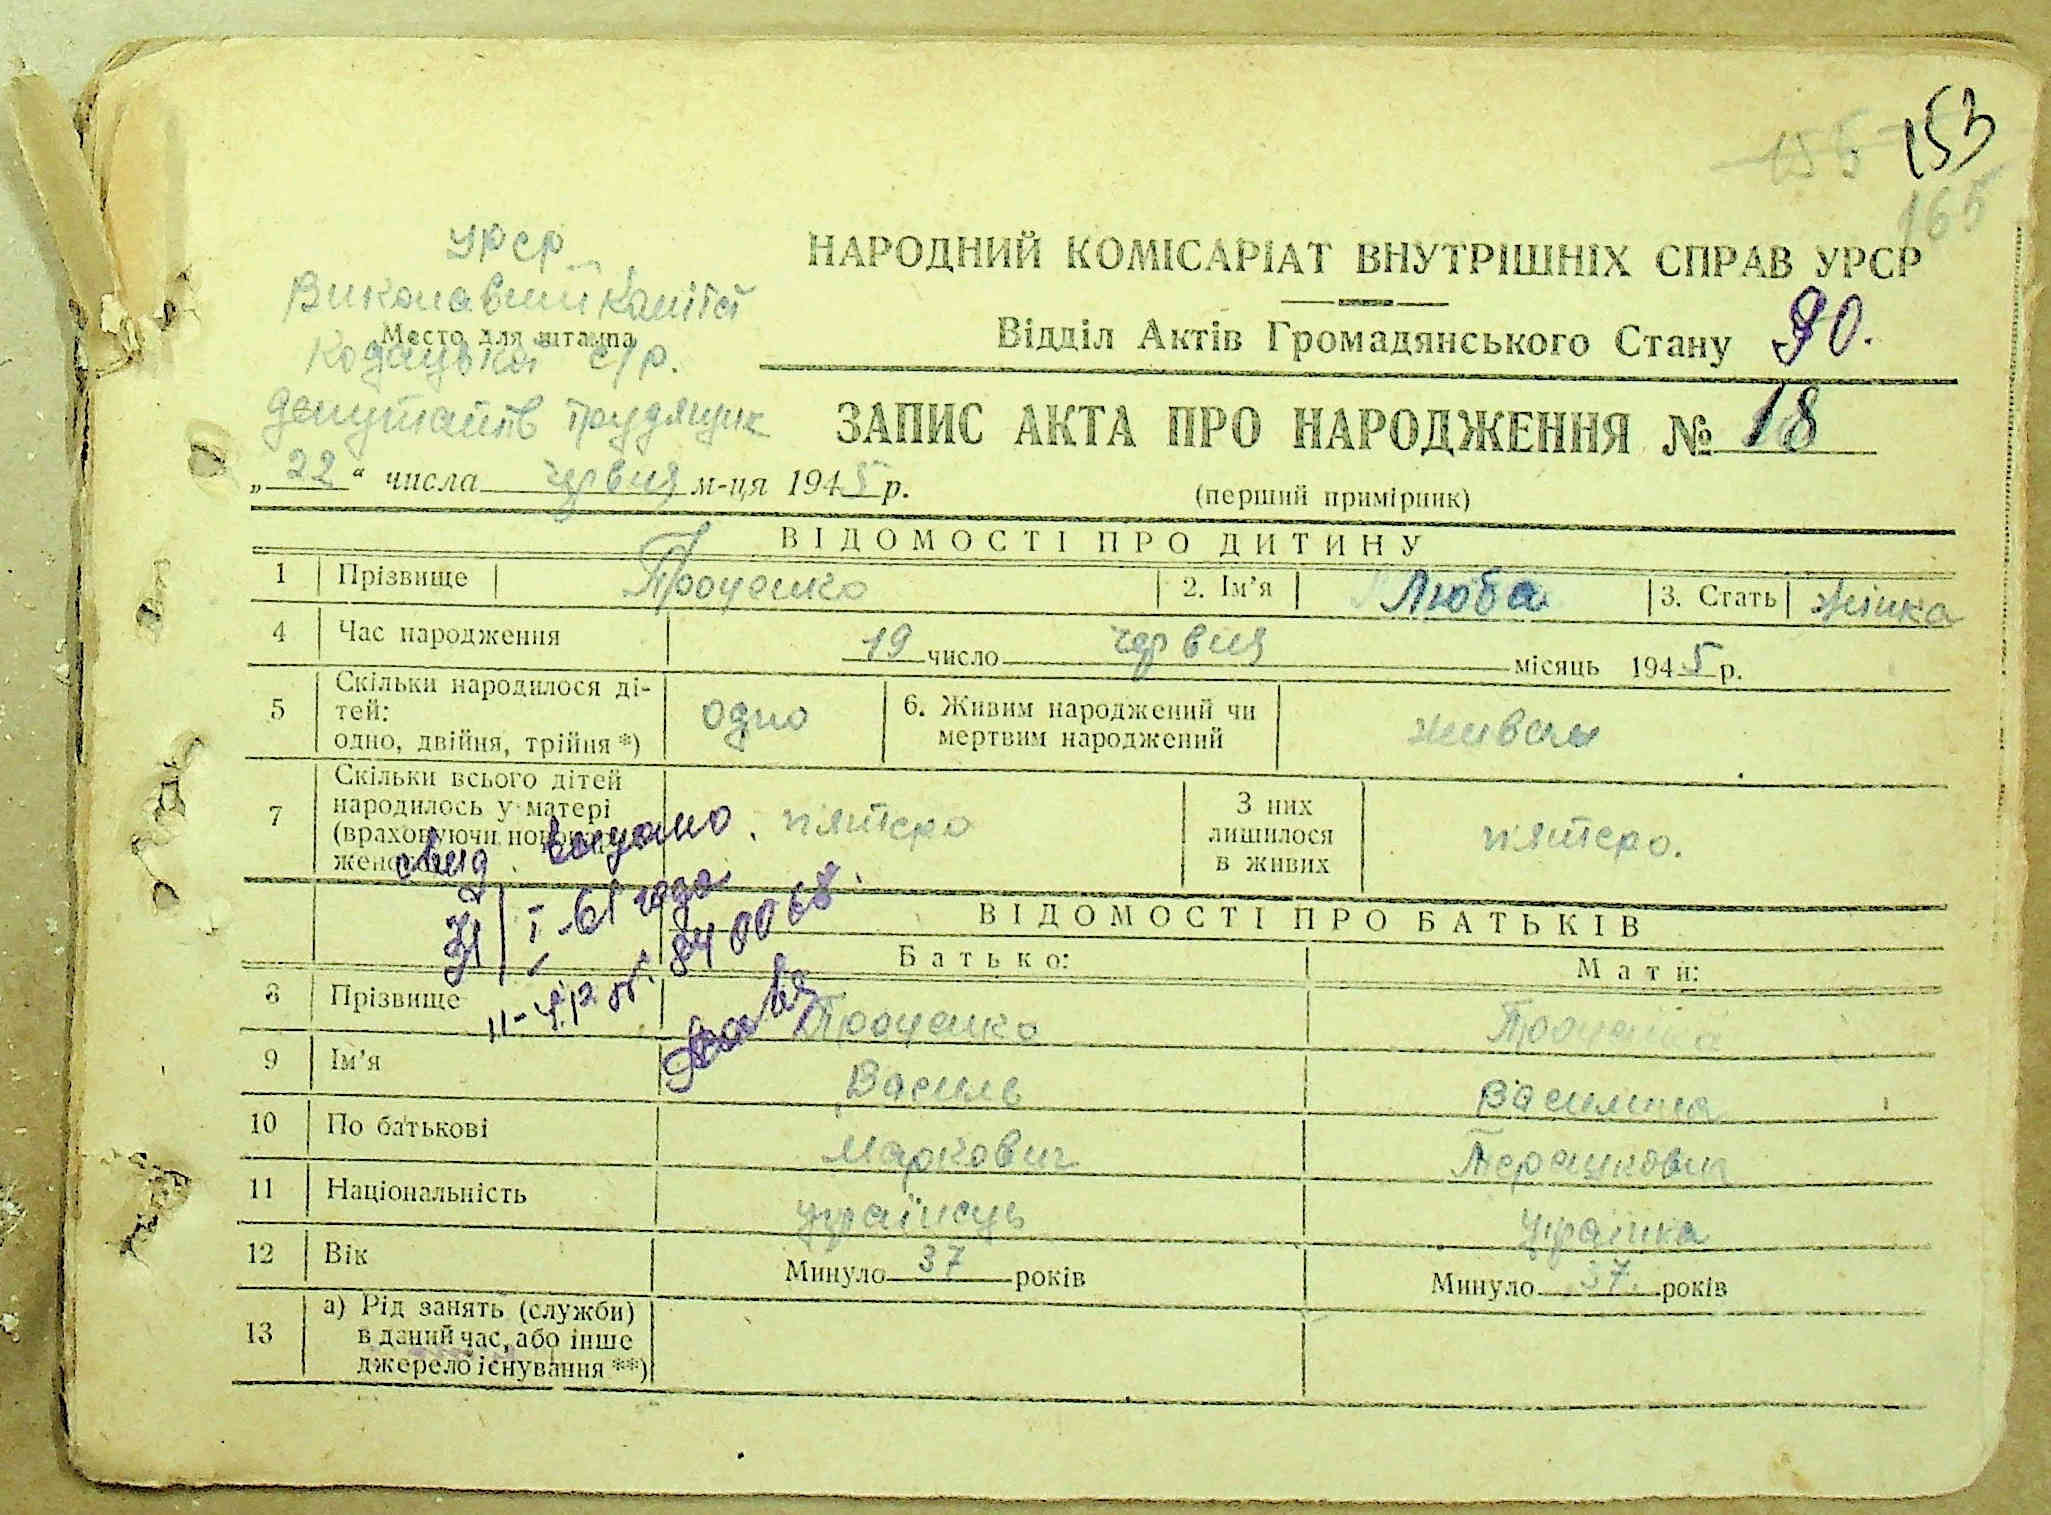 155 153
165
УРСР
Виконавчий комітет
Место для штампа
Кодацької с/р.
депутатів трудящих
НАРОДНИЙ КОМІСАРІАТ ВНУТРІШНІХ СПРАВ УРСР
Відділ Актів Громадянського Стану 90.
ЗАПИС АКТА ПРО НАРОДЖЕННЯ № 18
„22“ числа червня м-ця 1945 р.
(перший примірник)
ВІДОМОСТІ ПРО ДИТИНУ
1 Прізвище Проценко 2. Ім'я Люба 3. Стать жінка
4 Час народження 19 число червня місяць 1945 р.
5 Скільки народилося ді-
тей:
одно, двійня, трійня *) одно 6. Живим народжений чи
мертвим народжений живим
7 Скільки всього дітей
народилось у матері
(враховуючи новонарод-
женого) пятеро З них
лишилося
в живих пятеро.
свид выдано
31/I-61 года
840068.
ВІДОМОСТІ ПРО БАТЬКІВ
Батько: Мати:
8 Прізвище Проценко Проценко
9 Ім'я Василь Василина
10 По батькові Маркович
11 Національність українець українка
12 Вік Минуло 37 років Минуло 37 років
13 а) Рід занять (служби)
в даний час, або інше
джерело існування **)